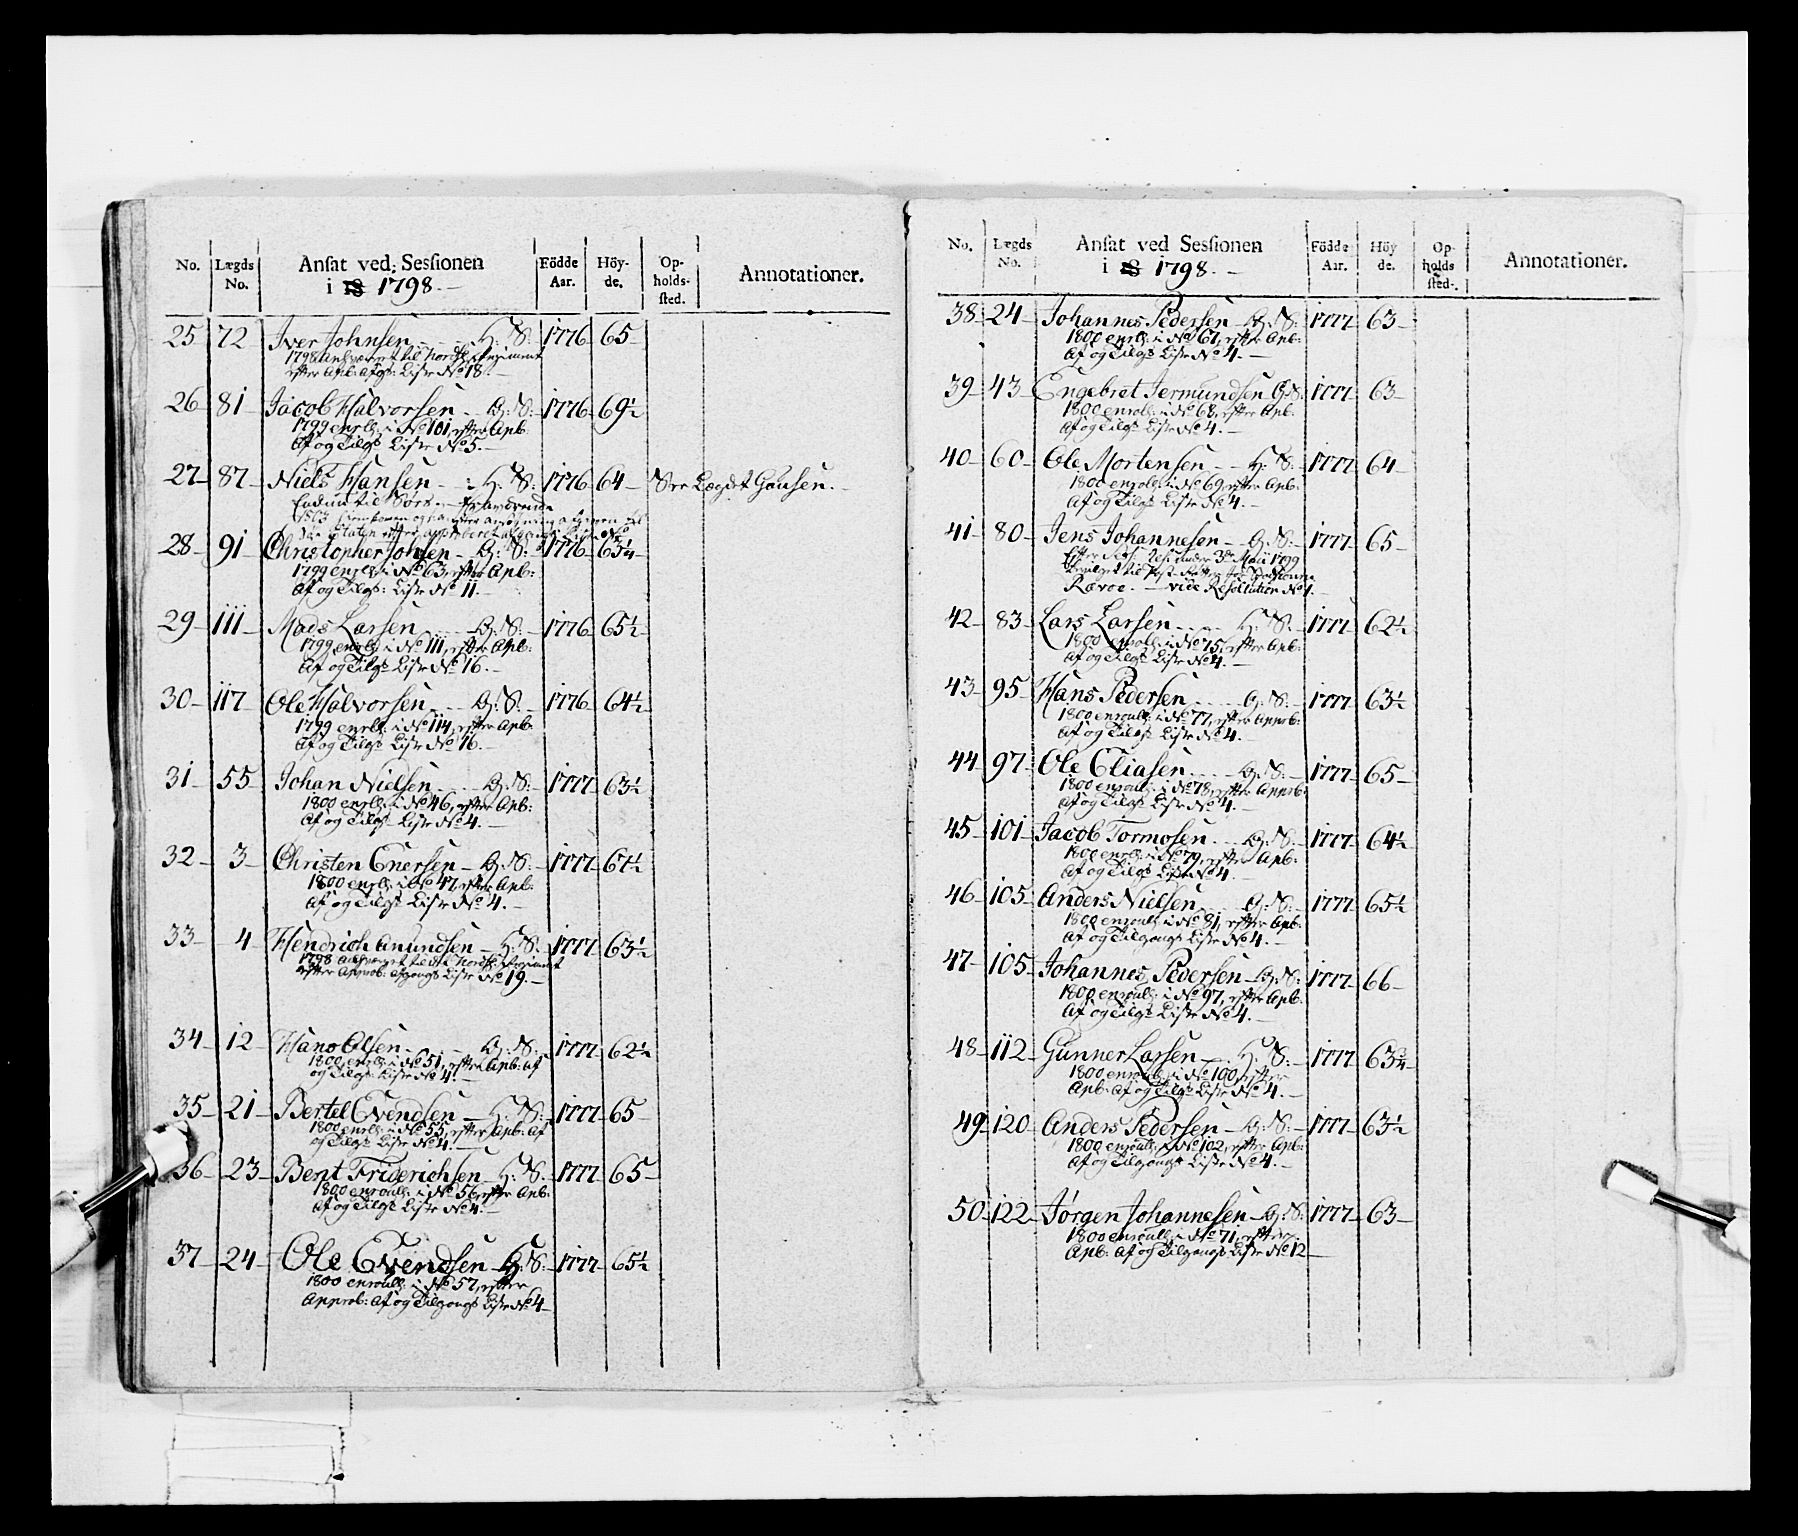 No. Lægds No. Ansat ved Sessionen i 18 1798. Födde Aar. Höyde. Opholdssted. Annotationer.
25 72 Iver Johnsen H: S: 1776 65
1798 til Nordf: Regiment
efter Apb: Afgs: Liste No 18.
26 81 Jacob Halvorsen G: S: 1776 69½
1799 enrll: i No 101, efter Apb:
Af og Tilgs Liste No 5.
27 87 Niels Hansen H: S: 1776 64 See Lægdt Hansen.
28 91 Christopher Johsen G: S: 1776 63¼
1799 enrll: i No 63, efter Apb:
Af og Tilgs: Liste No 11.
29 111 Mads Larsen G: S: 1776 65½
1799 enrll: i No 111, efter Apb:
Af og Tilgs Liste No 16.
30 117 Ole Halvorsen G: S: 1776 64½
1799 enrll: i No 114, efter Apb:
Af og Tilgs Liste No 16.
31 55 Johan Nielsen G: S: 1777 63½
1800 enrll: i No 46, efter Apb:
Af og Tilgs Liste No 4.
32 3 Christen Enersen G: S: 1777 67½
1800 enrll: i No 47, efter Apb:
Af og Tilgs Liste No 4.
33 4 Hendrich Amundsen H: S: 1777 63½
1798 til Nordf: Regiment
efter Approb: Afgangs Liste No 19.
34 12 Hans Olsen G: S: 1777 62½
1800 enrll: i No 51, efter Apb: Af
og Tilgs Liste No 4.
35 21 Bertel Evendsen H: S: 1777 65
1800 enrll: i No 55, efter Apb: Af
og Tilgs Liste No 4.
36 23 Bent Friderichsen H: S: 1777 65
1800 enroull: i No 56, efter Apb:
Af og Tilgs Liste No 4.
37 24 Ole Evendsen H: S: 1777 65½
1800 enroull: i No 57, efter
Approb: Af og Tilgangs Liste No 4
No. Lægds No. Ansat ved Sessionen i 18 1798. Födde Aar. Höyde. Opholdssted. Annotationer.
38 24 Johannes Pedersen G: S: 1777 63
1800 enrll: i No 67, efter Apb:
Af og Tilgs Liste No 4.
39 43 Engebret Jermundsen G: S: 1777 63
1800 enroll: i No 68, efter Apb:
Af og Tilgs Liste No 4.
40 60 Ole Mortensen H: S: 1777 64
1800 enroll: i No 69, efter Apb:
Af og Tilgs Liste No 4.
41 80 Jens Johannesen G: S: 1777 65
Efter 3de Maii 1799
til Post
Rævoe. vide Resolution No 1.
42 83 Lars Larsen H: S: 1777 62½
1800 enroll: i No 75, efter Apb:
Af og Tilgs Liste No 4.
43 95 Hans Pedersen G: S: 1777 63½
1800 enroull: i No 77, efter Approb:
Af og Tilgs Liste No 4.
44 97 Ole Eliasen G: S: 1777 65
1800 enroull: i No 78, efter Approb:
Af og Tilgs Liste No 4.
45 101 Jacob Tormosen G: S: 1777 64½
1800 enrll: i No 79, efter Apb:
Af og Tilgs Liste No 4.
46 105 Anders Nielsen G: S: 1777 65½
1800 enroull: i No 81, efter Apb:
Af og Tilgangs Liste No 4.
47 105 Johannes Pedersen G: S: 1777 66
1800 enroull: i No 97, efter Apb:
Af og Tilgs Liste No 4.
48 112 Gunner Larsen H: S: 1777 63¾
1800 enroull: i No 100, efter
Apb: Af og Tilgs Liste No 4.
49 120 Anders Pedersen G: S: 1777 63½
1800 enroull: i No 102, efter Apb:
Af og Tilgangs Liste No 4.
50 122 Jørgen Johannesen G: S: 1777 63
1800 enroull: i No 71, efter
Apb: Af og Tilgangs Liste No 12